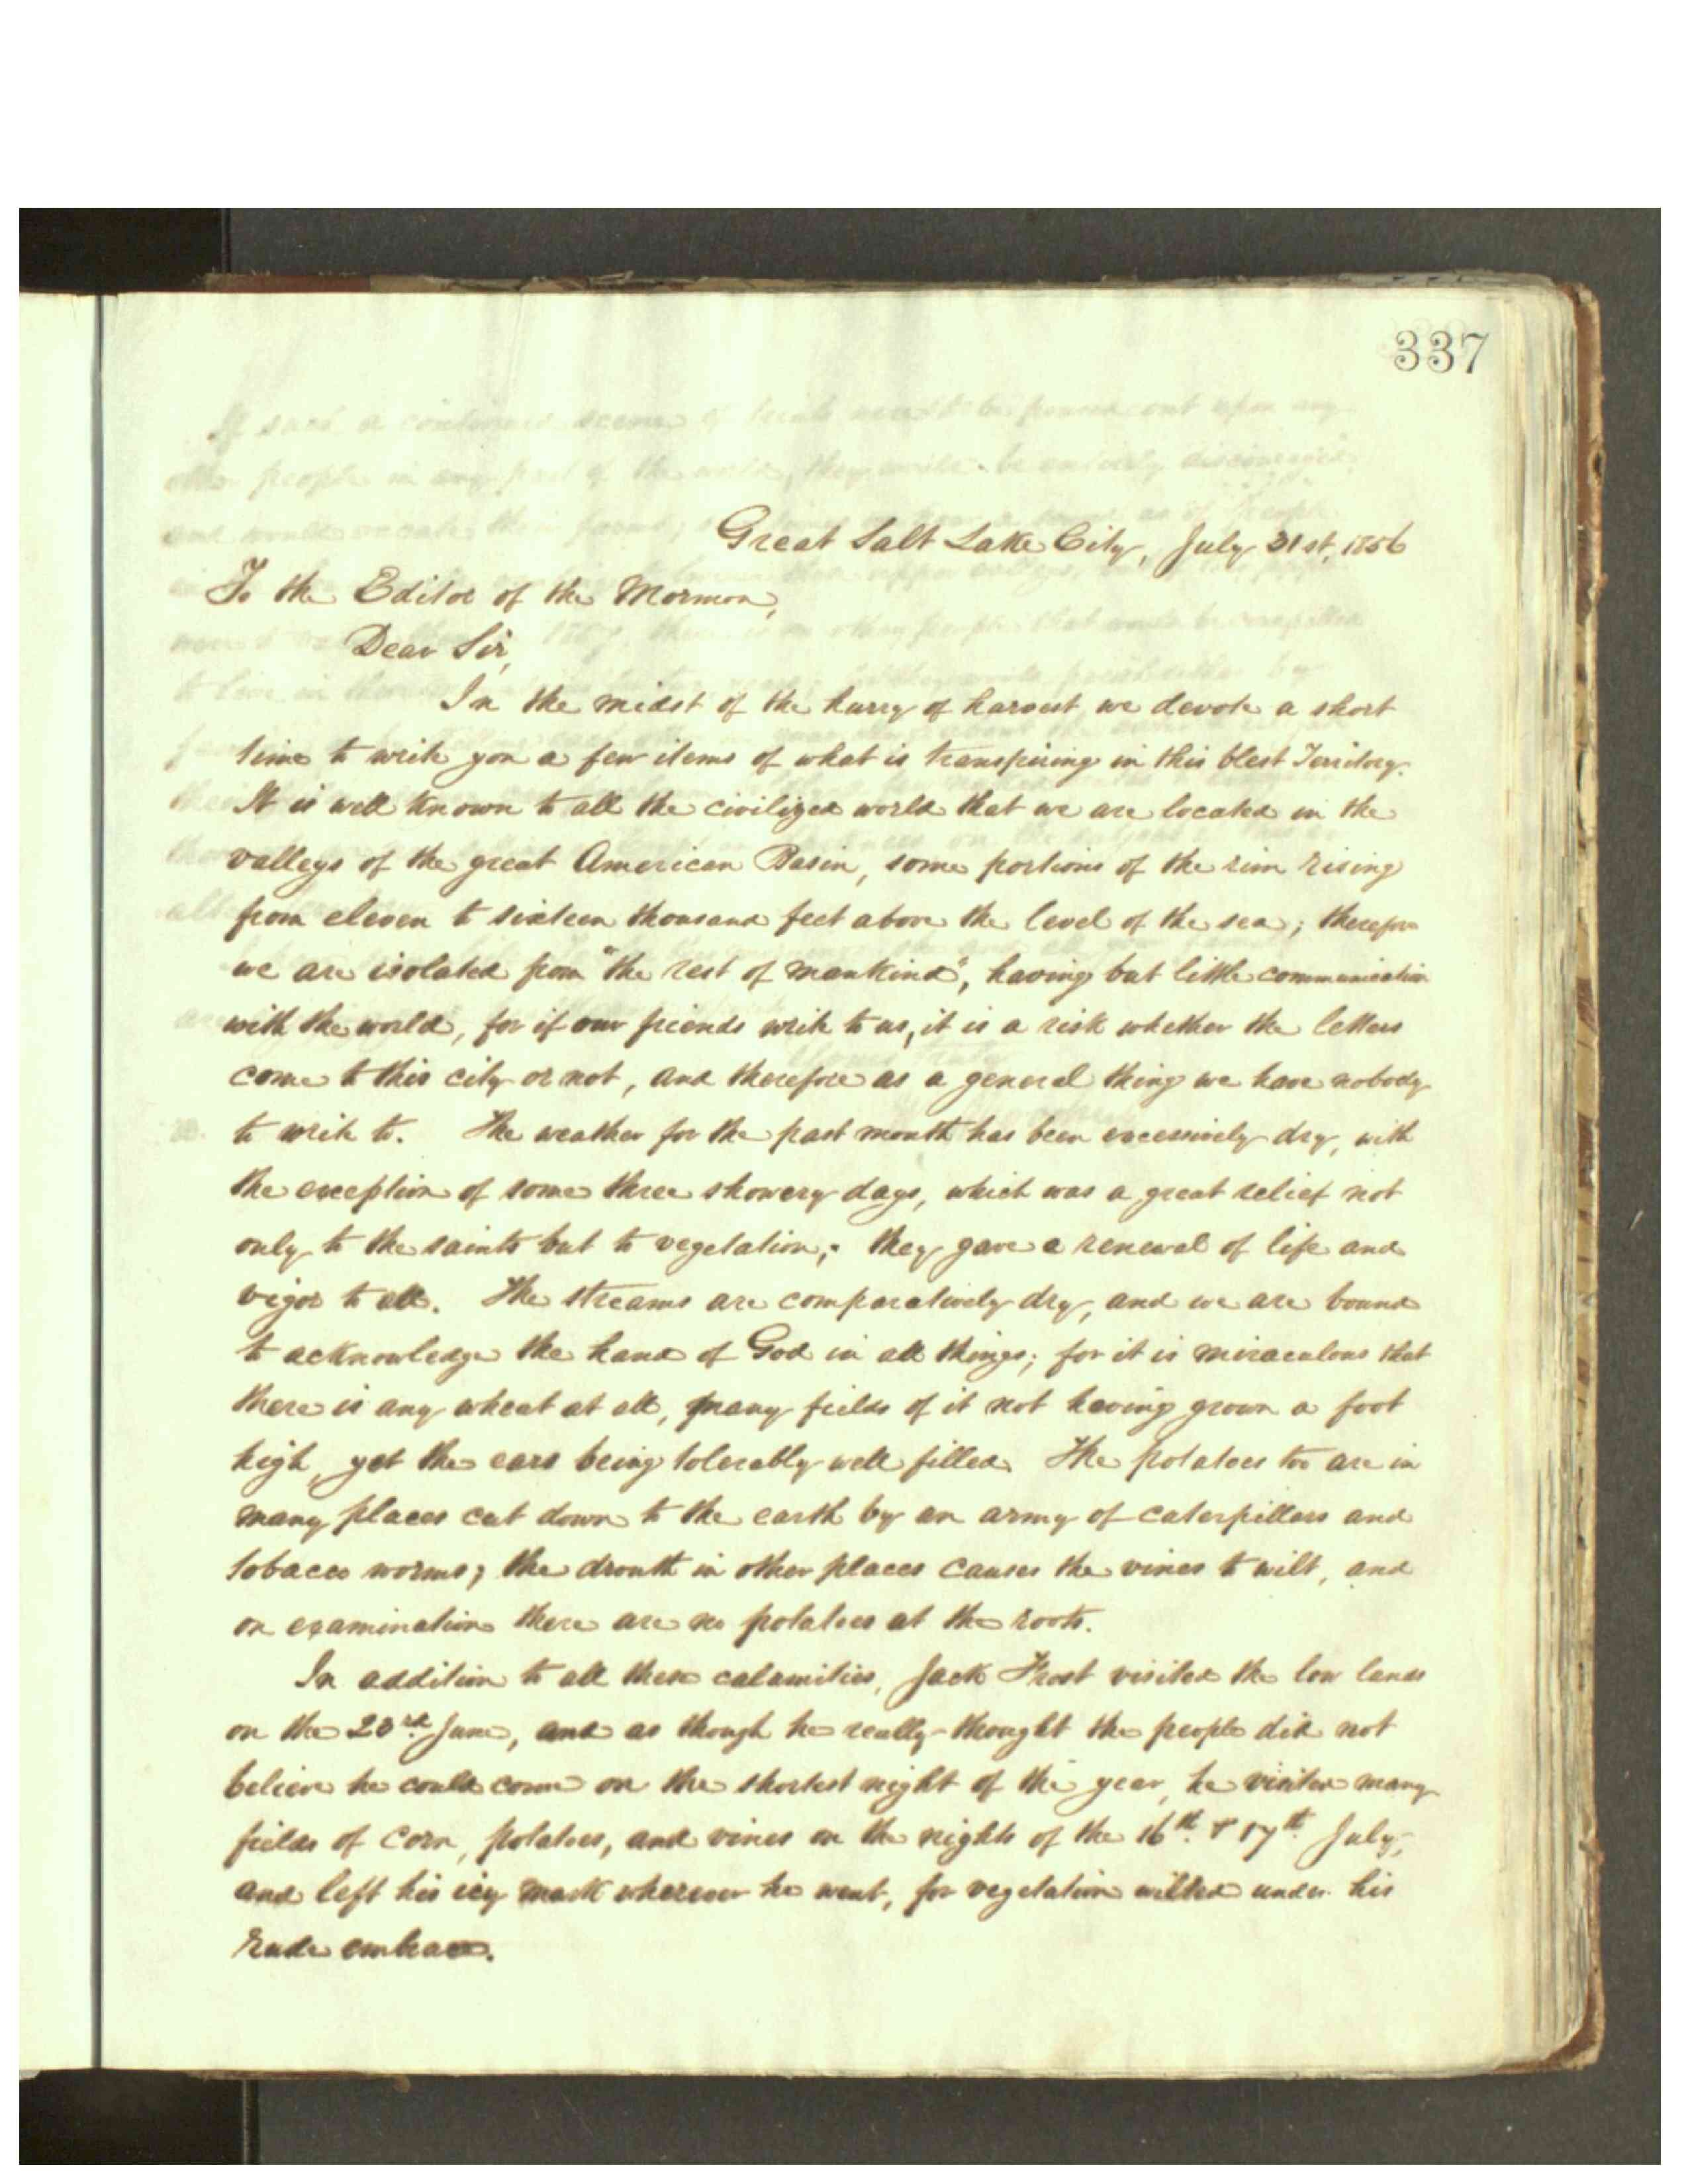 337
Great Salt Lake City, July 31st, 1856
To the Editor of the Mormon,
Dear Sir,
In the midst of the hurry of harvest we devote a short
time to write you a few items of what is transpiring in this blest Territory.
It is well known to all the civilized world that we are located in the
valleys of the great American Basin, some portions of the rim rising
from eleven to sixteen thousand feet above the level of the sea; therefore
we are isolated from "the rest of mankind", having but little communication
with the world, for if our friends write to us, it is a risk whether the letters
come to this city or not, and therefore as a general thing we have nobody
to write to. The weather for the past month has been excessively dry, with
the exception of some three showery days, which was a great relief not
only to the saints but to vegetation; they gave a renewal of life and
vigor to all. The streams are comparatively dry, and we are bound
to acknowledge the hand of God in all things; for it is miraculous that
there is any wheat at all, many fields of it not having grown a foot
high, yet the ears being tolerably well filled. The potatoes too are in
many places cut down to the earth by an army of caterpillars and
tobacco worms; the drouth in other places causes the vines to wilt, and
on examination there are no potatoes at the roots.
In addition to all these calamities, Jack Frost visited the low lands
on the 23rd June, and as though he really thought the people did not
believe he could come on the shortest night of the year, he visited many
fields of corn, potatoes, and vines on the nights of the 16th & 17th July,
and left his icy mark wherever he went, for vegetation wilted under his
rude embrace.